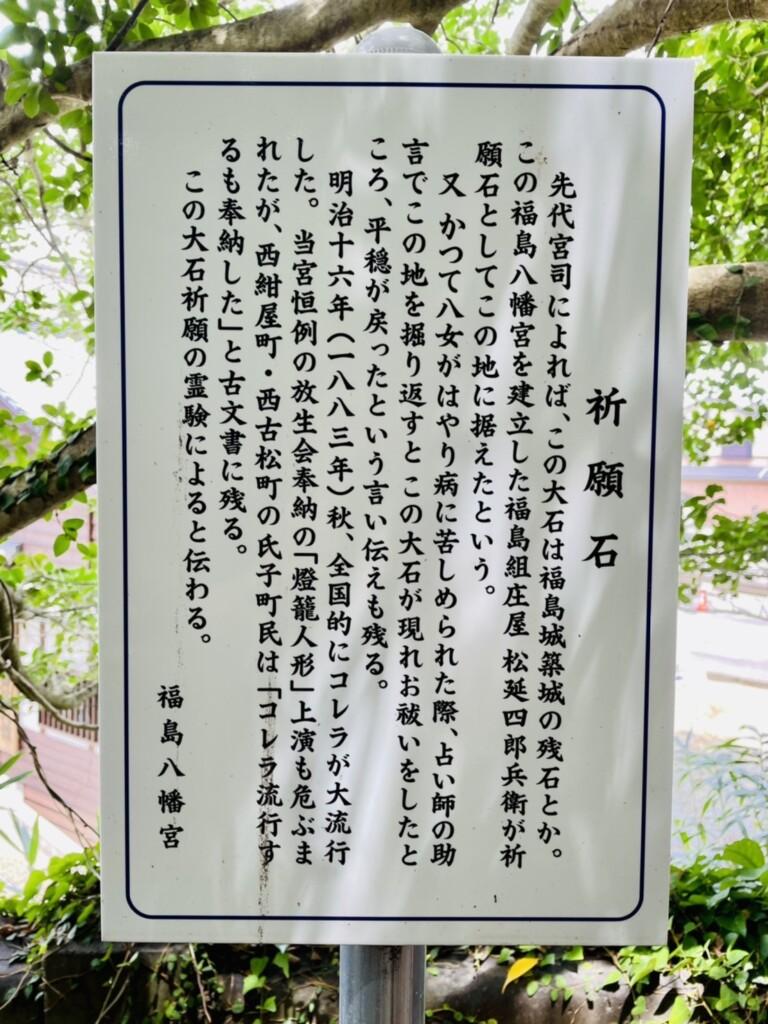 祈願石
先代宮司によれば、この大石は福島城築城の残石とか。
この福島八幡宮を建立した福島組庄屋 松延四郎兵衛が祈
願石としてこの地に据えたという。
又 かつて八女がはやり病に苦しめられた際、占い師の助
言でこの地を掘り返すと この大石が現れお祓いをしたと
ころ、平穏が戻ったという言い伝えも残る。
明治十六年（一八八三年）秋、全国的にコレラが大流行
した。当宮恒例の放生会奉納の「燈籠人形」上演も危ぶま
れたが、西紺屋町・西古松町の氏子町民は「コレラ流行す
るも奉納した」と古文書に残る。
この大石祈願の霊験によると伝わる。
福島八幡宮